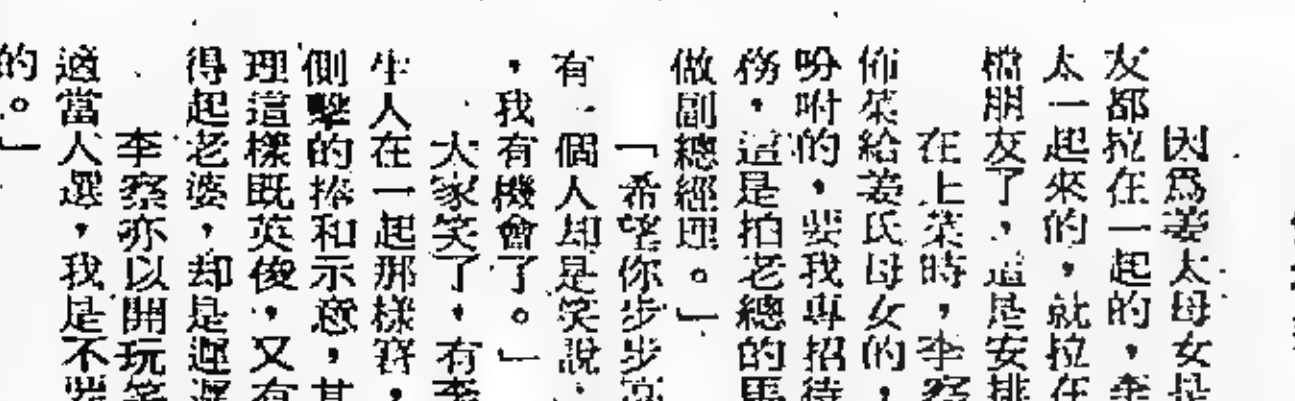 因爲姜太母女是
友都拉在一起的，李
太一起來的，就拉在
檔朋友了，這是安排
在上菜時，李察
佈菜給姜氏母女的，
吩咐的，要我專招待
務，這是拍老總的馬
做副總經理。」
「希望你步步高
有一個人却是笑說：
，我有機會了。」
大家笑了，有李
生人在一起那樣
側擊的捧和示意，其
理這樣既英俊，又有
得起老婆，却是遲遲
李察亦以開玩笑
適當人選，我是不
的。」